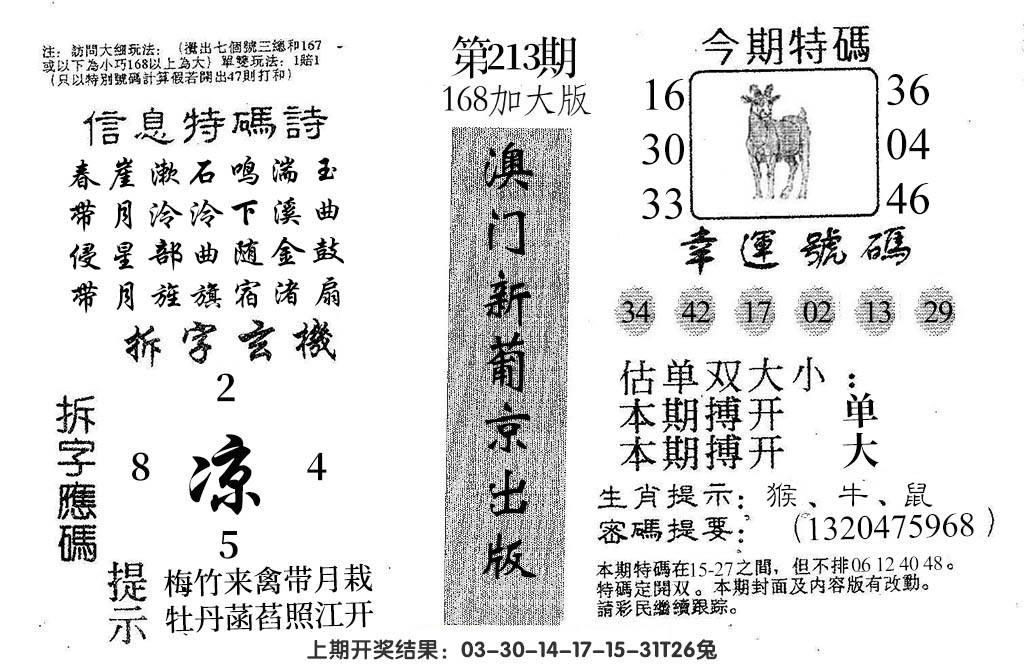 注：訪問大细玩法：（攪出七個號三總和167
或以下為小巧168以上為大）單雙玩法：1賠1
（只以特別號碼計算假若開出47則打和）
信息特碼詩
春崖漱石鸣湍玉
带月泠泠下溪曲
侵星部曲随金鼓
带月旌旗宿渚扇
拆字玄機
2
拆字應碼
8 凉 4
5
提示
梅竹来禽带月栽
牡丹菡萏照江开
第213期
168加大版
澳门新葡京出版
今期特碼
16 36
30 04
33 46
幸運號碼
34 42 17 02 13 29
估单双大小：
本期搏开 单
本期搏开 大
生肖提示：猴、牛、鼠
密碼提要：（1320475968）
本期特碼在15-27之間，但不排06 12 40 48。
特碼定開双。本期封面及内容版有改動。
請彩民繼續跟踪。
上期开奖结果：03-30-14-17-15-31T26兔